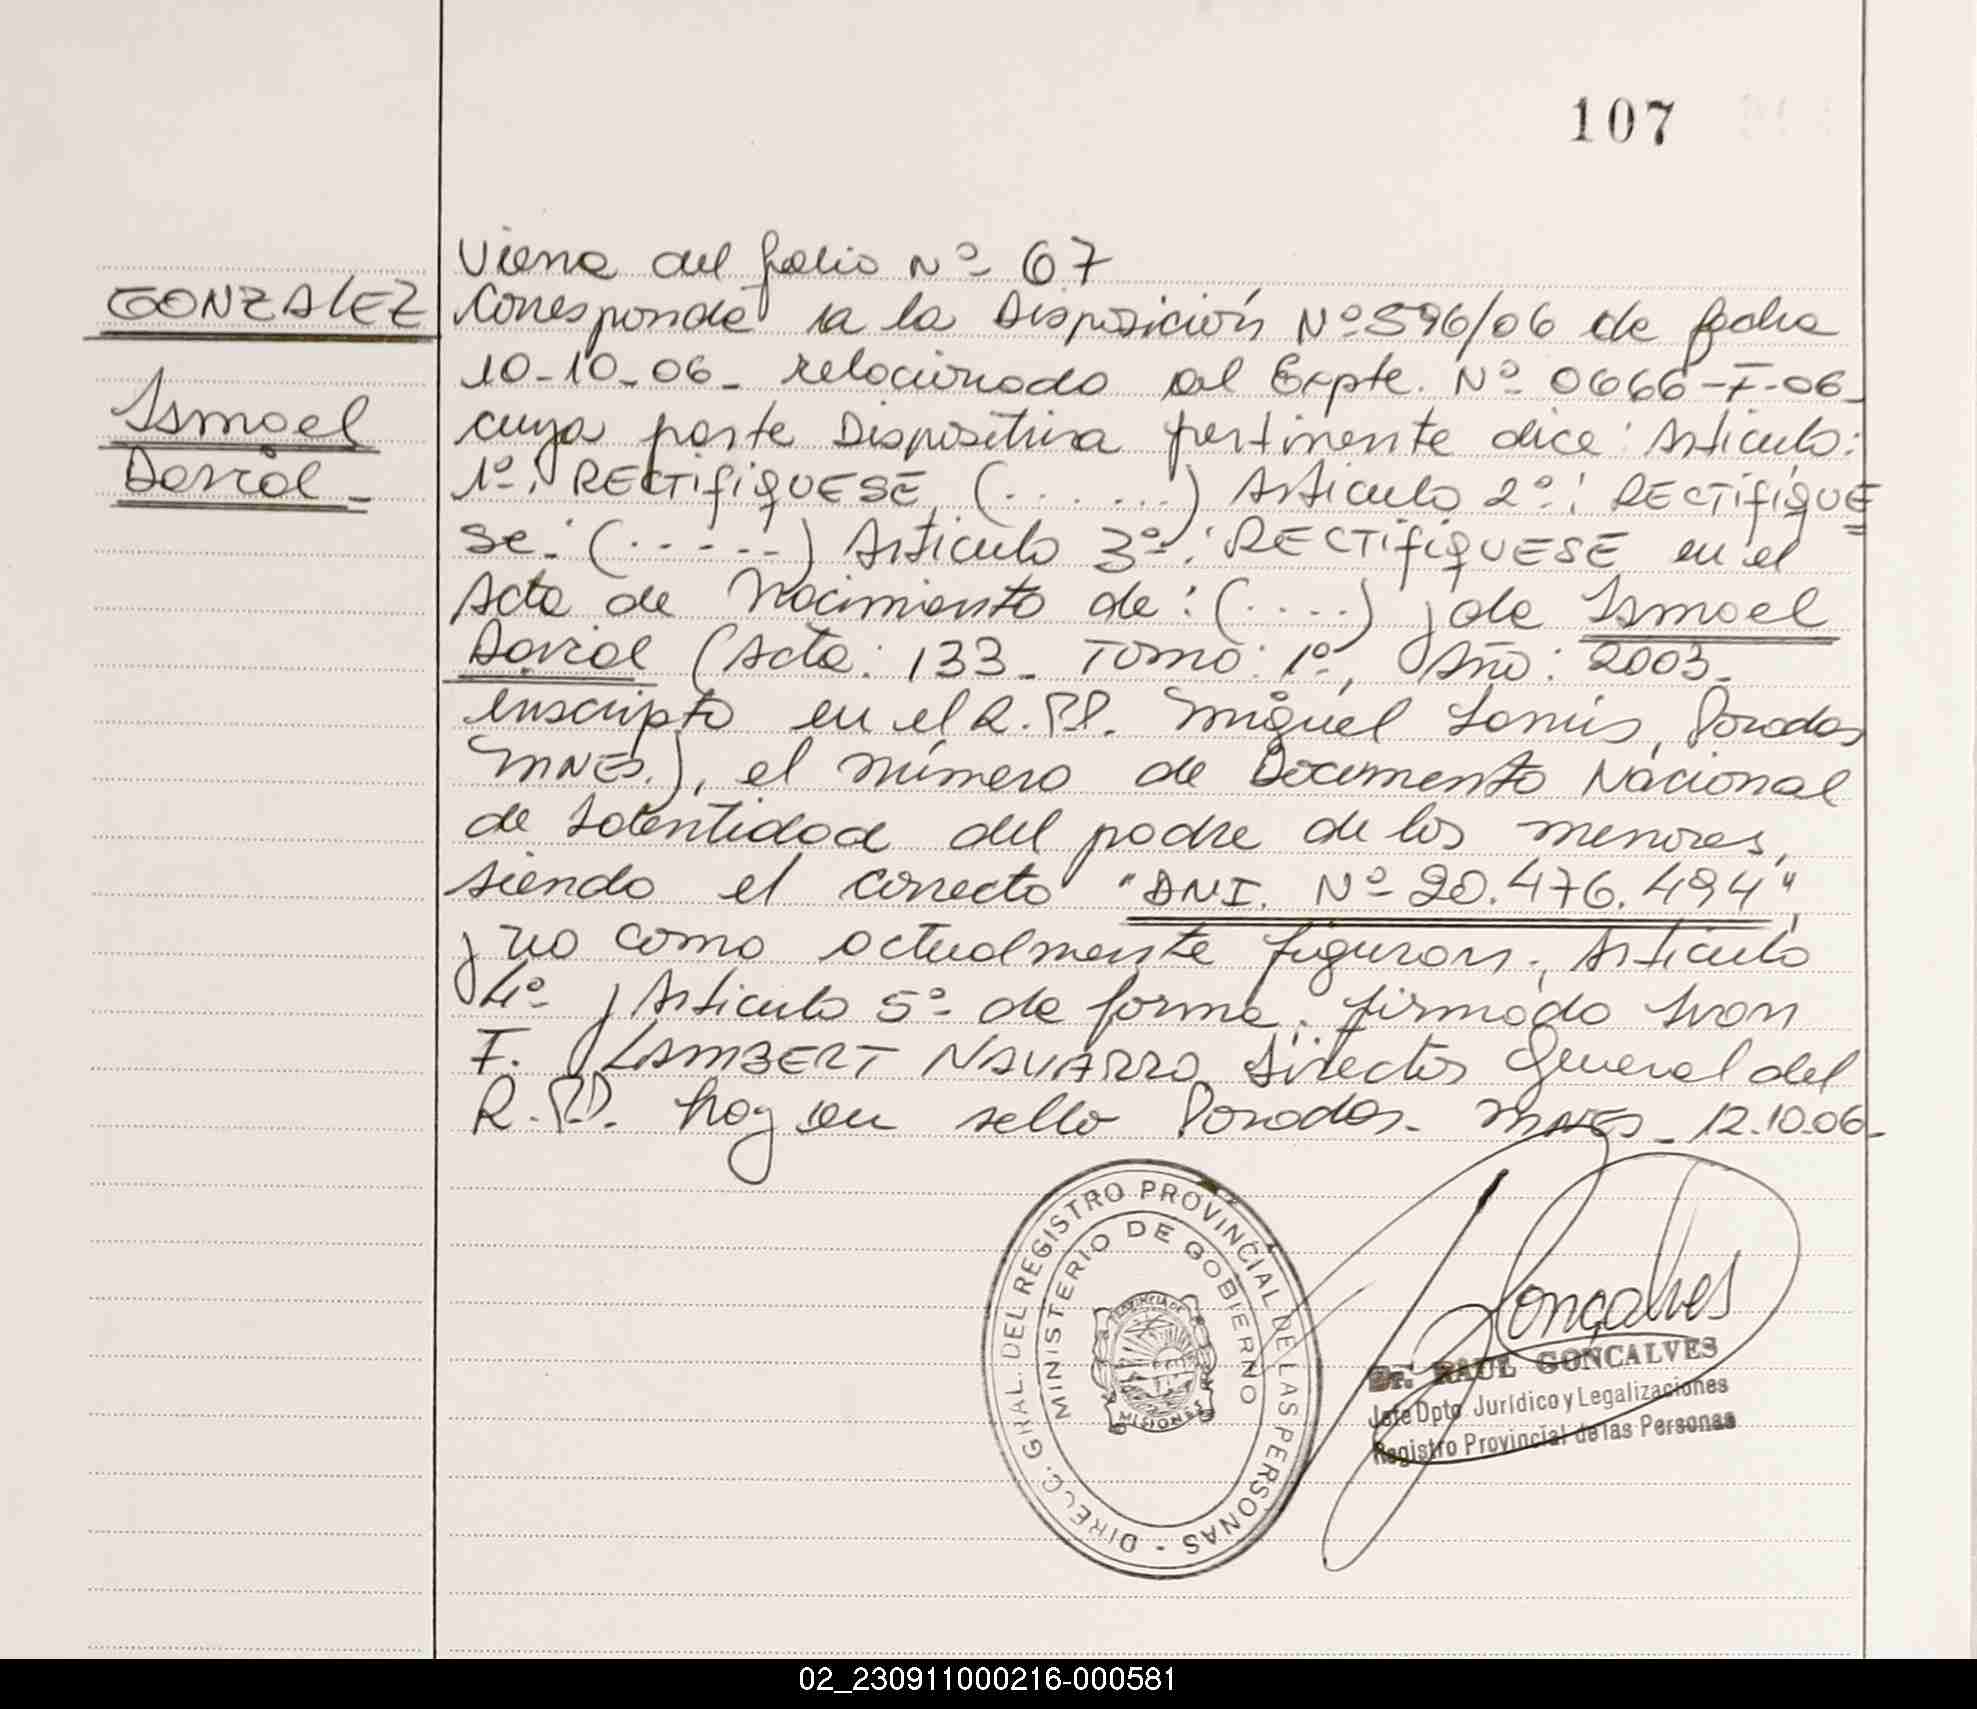 107
GONZALEZ
Ismael
David -
Viene del folio Nº 67
Corresponde a la Disposición Nº 596/06 de fecha
10-10-06- relacionado al Expte. Nº 0666-F-06-
cuya parte Dispositiva pertinente dice: Articulo:
1º: RECTIFIQUESE (.......) Articulo 2º: RECTIFIQUE
se: (.....) Articulo 3º: RECTIFIQUESE en el
Acta de Nacimiento de: (....) y de Ismael
David (Acta: 133 - Tomo: 1º, Año: 2003-
inscripto en el R.PP. Miguel Lanús, Posadas
MNES.), el número de Documento Nacional
de Identidad del padre de los menores,
siendo el correcto "DNI. Nº 20.476.494",
y no como actualmente figuran. Articulo
4º y Articulo 5º de forma. firmado Ivan
F. LAMBERT NAVARRO Director General del
R.PP. hay un sello Posadas- MNES- 12.10.06-
DIRECC. GRAL. DEL REGISTRO PROVINCIAL DE LAS PERSONAS -
MINISTERIO DE GOBIERNO
PROVINCIA DE
MISIONES
Gonçalves
Dr. RAUL GONCALVES
Jefe Dpto. Jurídico y Legalizaciones
Registro Provincial de las Personas
02_230911000216-000581